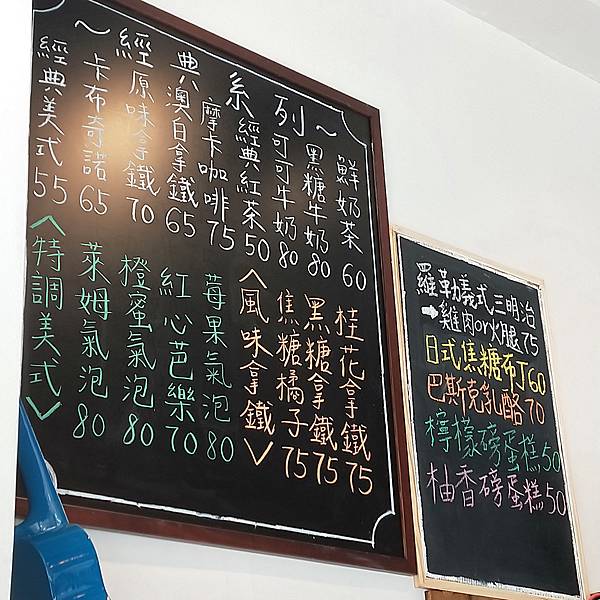 ～經典系列～
經典美式 55
卡布奇諾 65
原味拿鐵 70
澳白拿鐵 65
摩卡咖啡 75
經典紅茶 50
可可牛奶 80
黑糖牛奶 80
鮮奶茶 60
<特調美式>
萊姆氣泡 80
橙蜜氣泡 80
紅心芭樂 70
莓果氣泡 80
<風味拿鐵>
焦糖橘子 75
黑糖拿鐵 75
桂花拿鐵 75
羅勒義式三明治
➡雞肉or火腿75
日式焦糖布丁60
巴斯克乳酪70
檸檬磅蛋糕50
柚香磅蛋糕50